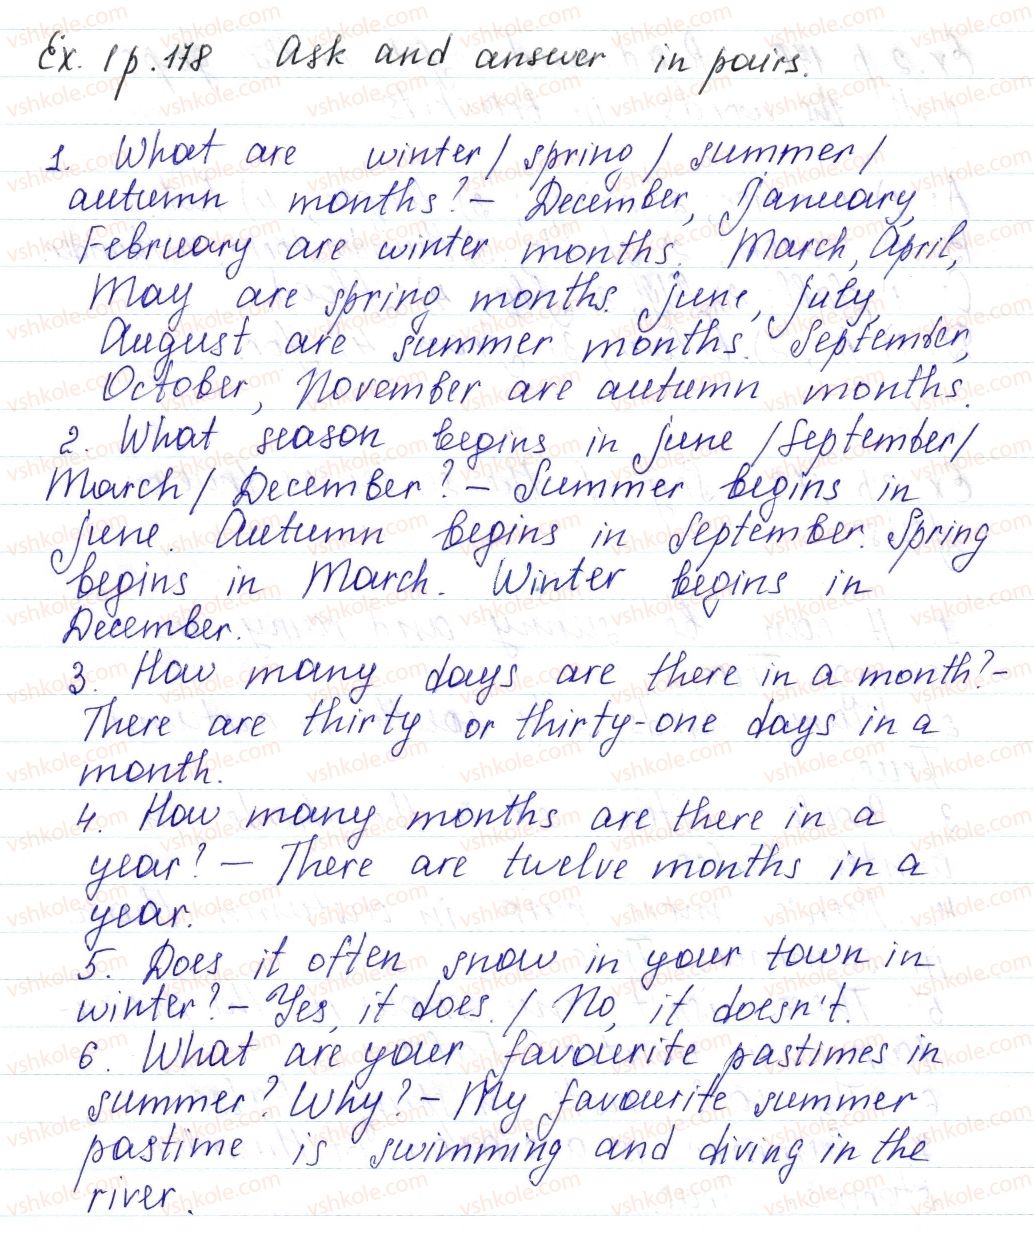 Ex. 1 p. 178 Ask and answer in pairs.
1. What are winter / spring / summer /
autumn months? – December, January,
February are winter months. March, April,
May are spring months. June, July,
August are summer months. September,
October, November are autumn months.
2. What season begins in June / September /
March / December? – Summer begins in
June. Autumn begins in September. Spring
begins in March. Winter begins in
December.
3. How many days are there in a month? –
There are thirty or thirty-one days in a
month.
4. How many months are there in a
year? – There are twelve months in a
year.
5. Does it often snow in your town in
winter? – Yes, it does. / No, it doesn't.
6. What are your favourite pastimes in
summer? Why? – My favourite summer
pastime is swimming and diving in the
river.